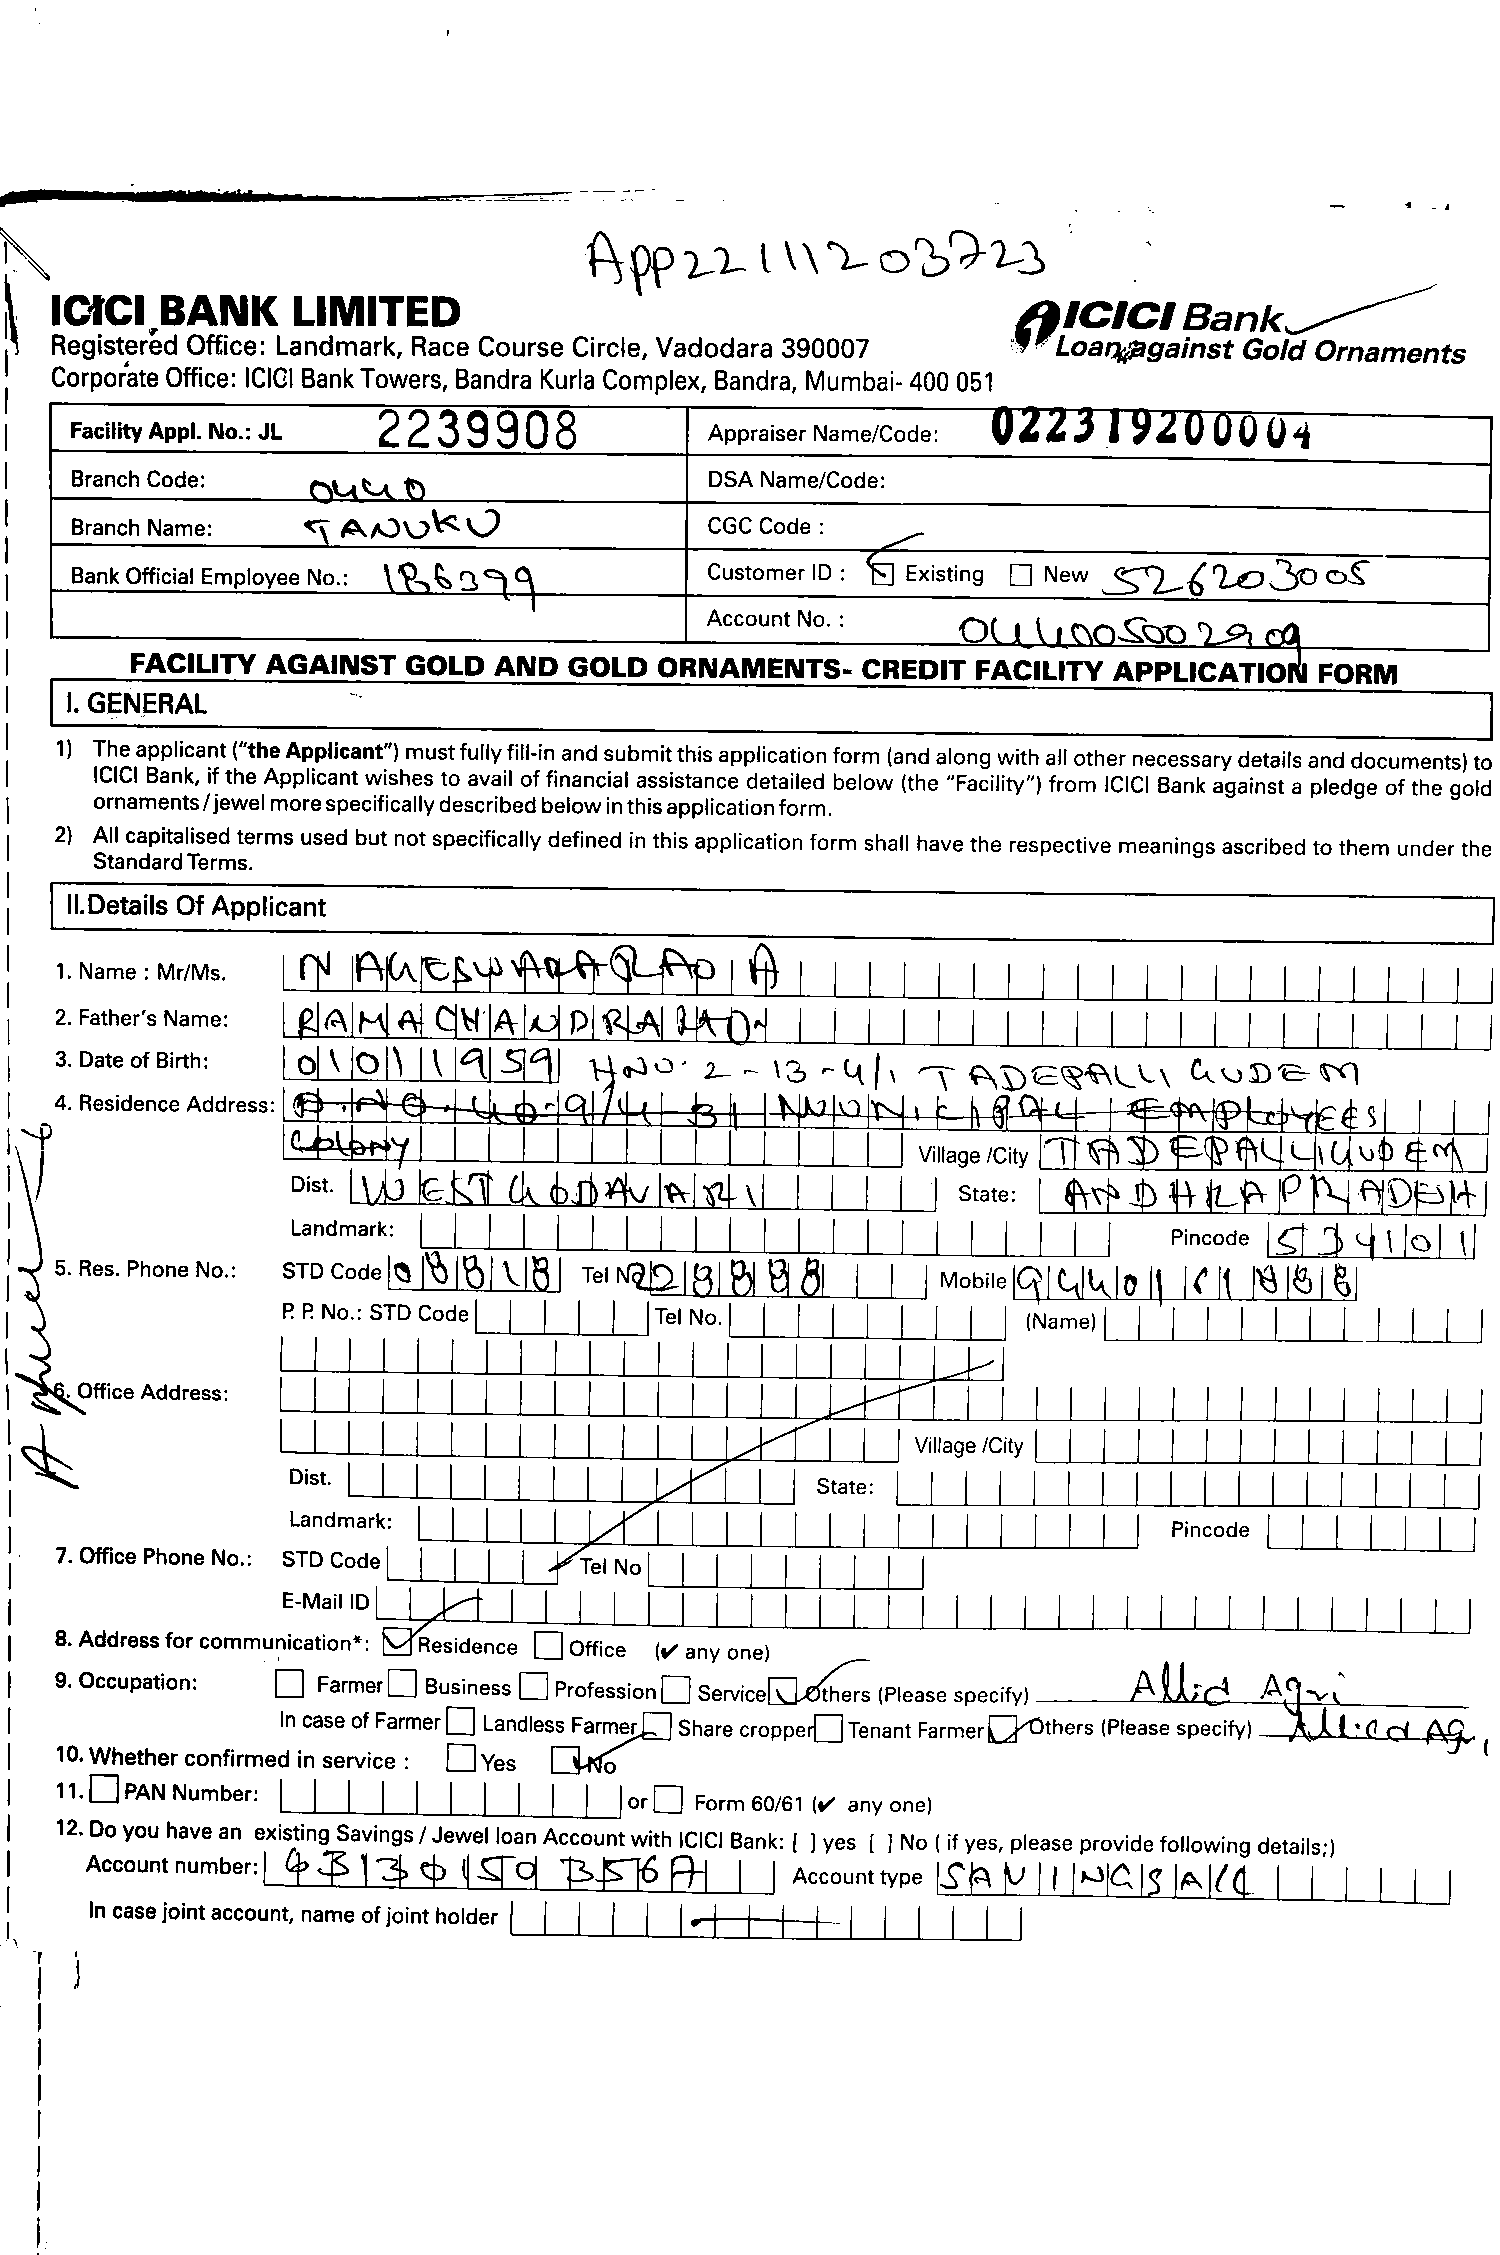 App22111203723
ICICI BANK LIMITED
Registered Office: Landmark, Race Course Circle, Vadodara 390007
Corporate Office: ICICI Bank Towers, Bandra Kurla Complex, Bandra, Mumbai- 400 051
ICICI Bank
Loan against Gold Ornaments
Facility Appl. No.: JL 2239908 Appraiser Name/Code: 022319200004
Branch Code: 0440 DSA Name/Code:
Branch Name: TANUKU CGC Code :
Bank Official Employee No.: Customer ID : Existing New 526203005
Account No. : 044005002909
FACILITY AGAINST GOLD AND GOLD ORNAMENTS- CREDIT FACILITY APPLICATION FORM
I. GENERAL
1) The applicant ("the Applicant") must fully fill-in and submit this application form (and along with all other necessary details and documents) to
ICICI Bank, if the Applicant wishes to avail of financial assistance detailed below (the "Facility") from ICICI Bank against a pledge of the gold
ornaments/jewel more specifically described below in this application form.
2) All capitalised terms used but not specifically defined in this application form shall have the respective meanings ascribed to them under the
Standard Terms.
II.Details Of Applicant
1. Name : Mr/Ms. NAGESWARARAO A
2. Father's Name: RAMACHANDRARAO
3. Date of Birth: 01011959 HNO: 2-13-4/1 TADEPALLIGUDEM
4. Residence Address: EMPloYEES
Colony Village /City TADEPALLIGUDEM
Dist. WEST GODAVARI State: ANDHRAPRADESH
Landmark: Pincode 534101
5. Res. Phone No.: STD Code 08818 Tel No 228888 Mobile
P. P. No.: STD Code Tel No. (Name)
6. Office Address:
Village /City
Dist. State:
Landmark: Pincode
7. Office Phone No.: STD Code Tel No
E-Mail ID
8. Address for communication*: Residence Office (✔ any one)
9. Occupation: Farmer Business Profession Service Others (Please specify) Allid Agri
In case of Farmer Landless Farmer Share cropper Tenant Farmer Others (Please specify) Allied Ag
10. Whether confirmed in service : Yes No
11. PAN Number: or Form 60/61 (✔ any one)
12. Do you have an existing Savings / Jewel loan Account with ICICI Bank: [ ] yes [ ] No ( if yes, please provide following details;)
Account number: Account type SAVINGSA/C
In case joint account, name of joint holder